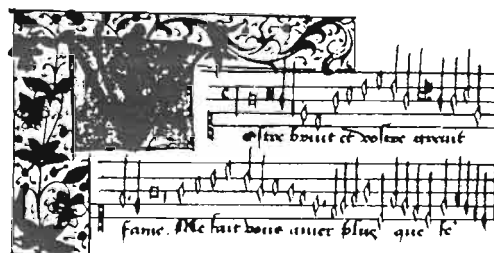 ostre bruit et vostre grant
fame. Me fait vous amer plus que le